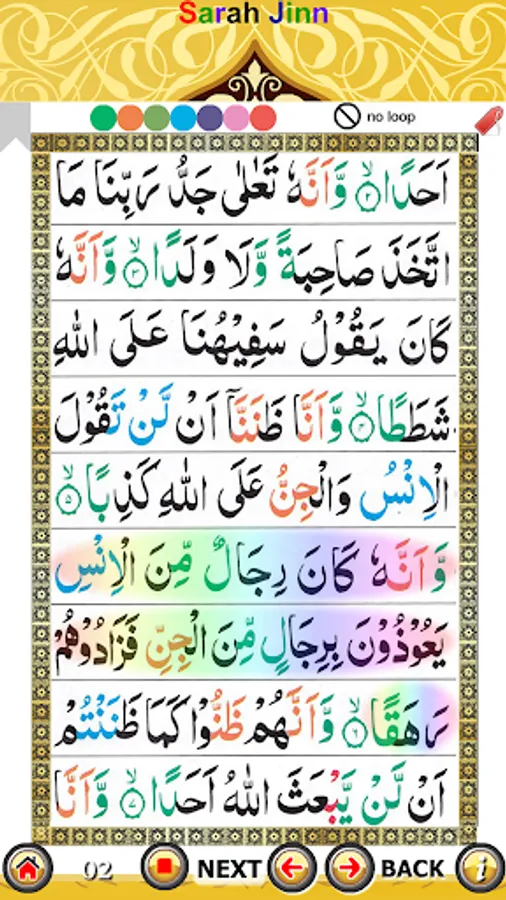 Sarah Jinn
no loop
اَحَدًا ۙ﴿۲﴾ وَّاَنَّهٗ تَعٰلٰى جَدُّ رَبِّنَا مَا
اتَّخَذَ صَاحِبَةً وَّلَا وَلَدًا ۙ﴿۳﴾ وَّاَنَّهٗ
كَانَ يَقُوْلُ سَفِيْهُنَا عَلَى اللّٰهِ
شَطَطًا ۙ﴿۴﴾ وَّاَنَّا ظَنَنَّاۤ اَنْ لَّنْ تَقُوْلَ
الْاِنْسُ وَالْجِنُّ عَلَى اللّٰهِ كَذِبًا ۙ﴿۵﴾
وَّاَنَّهٗ كَانَ رِجَالٌ مِّنَ الْاِنْسِ
يَعُوْذُوْنَ بِرِجَالٍ مِّنَ الْجِنِّ فَزَادُوْهُمْ
رَهَقًا ۙ﴿۶﴾ وَّاَنَّهُمْ ظَنُّوْا كَمَا ظَنَنْتُمْ
اَنْ لَّنْ يَّبْعَثَ اللّٰهُ اَحَدًا ۙ﴿۷﴾ وَّاَنَّا
02 NEXT BACK i